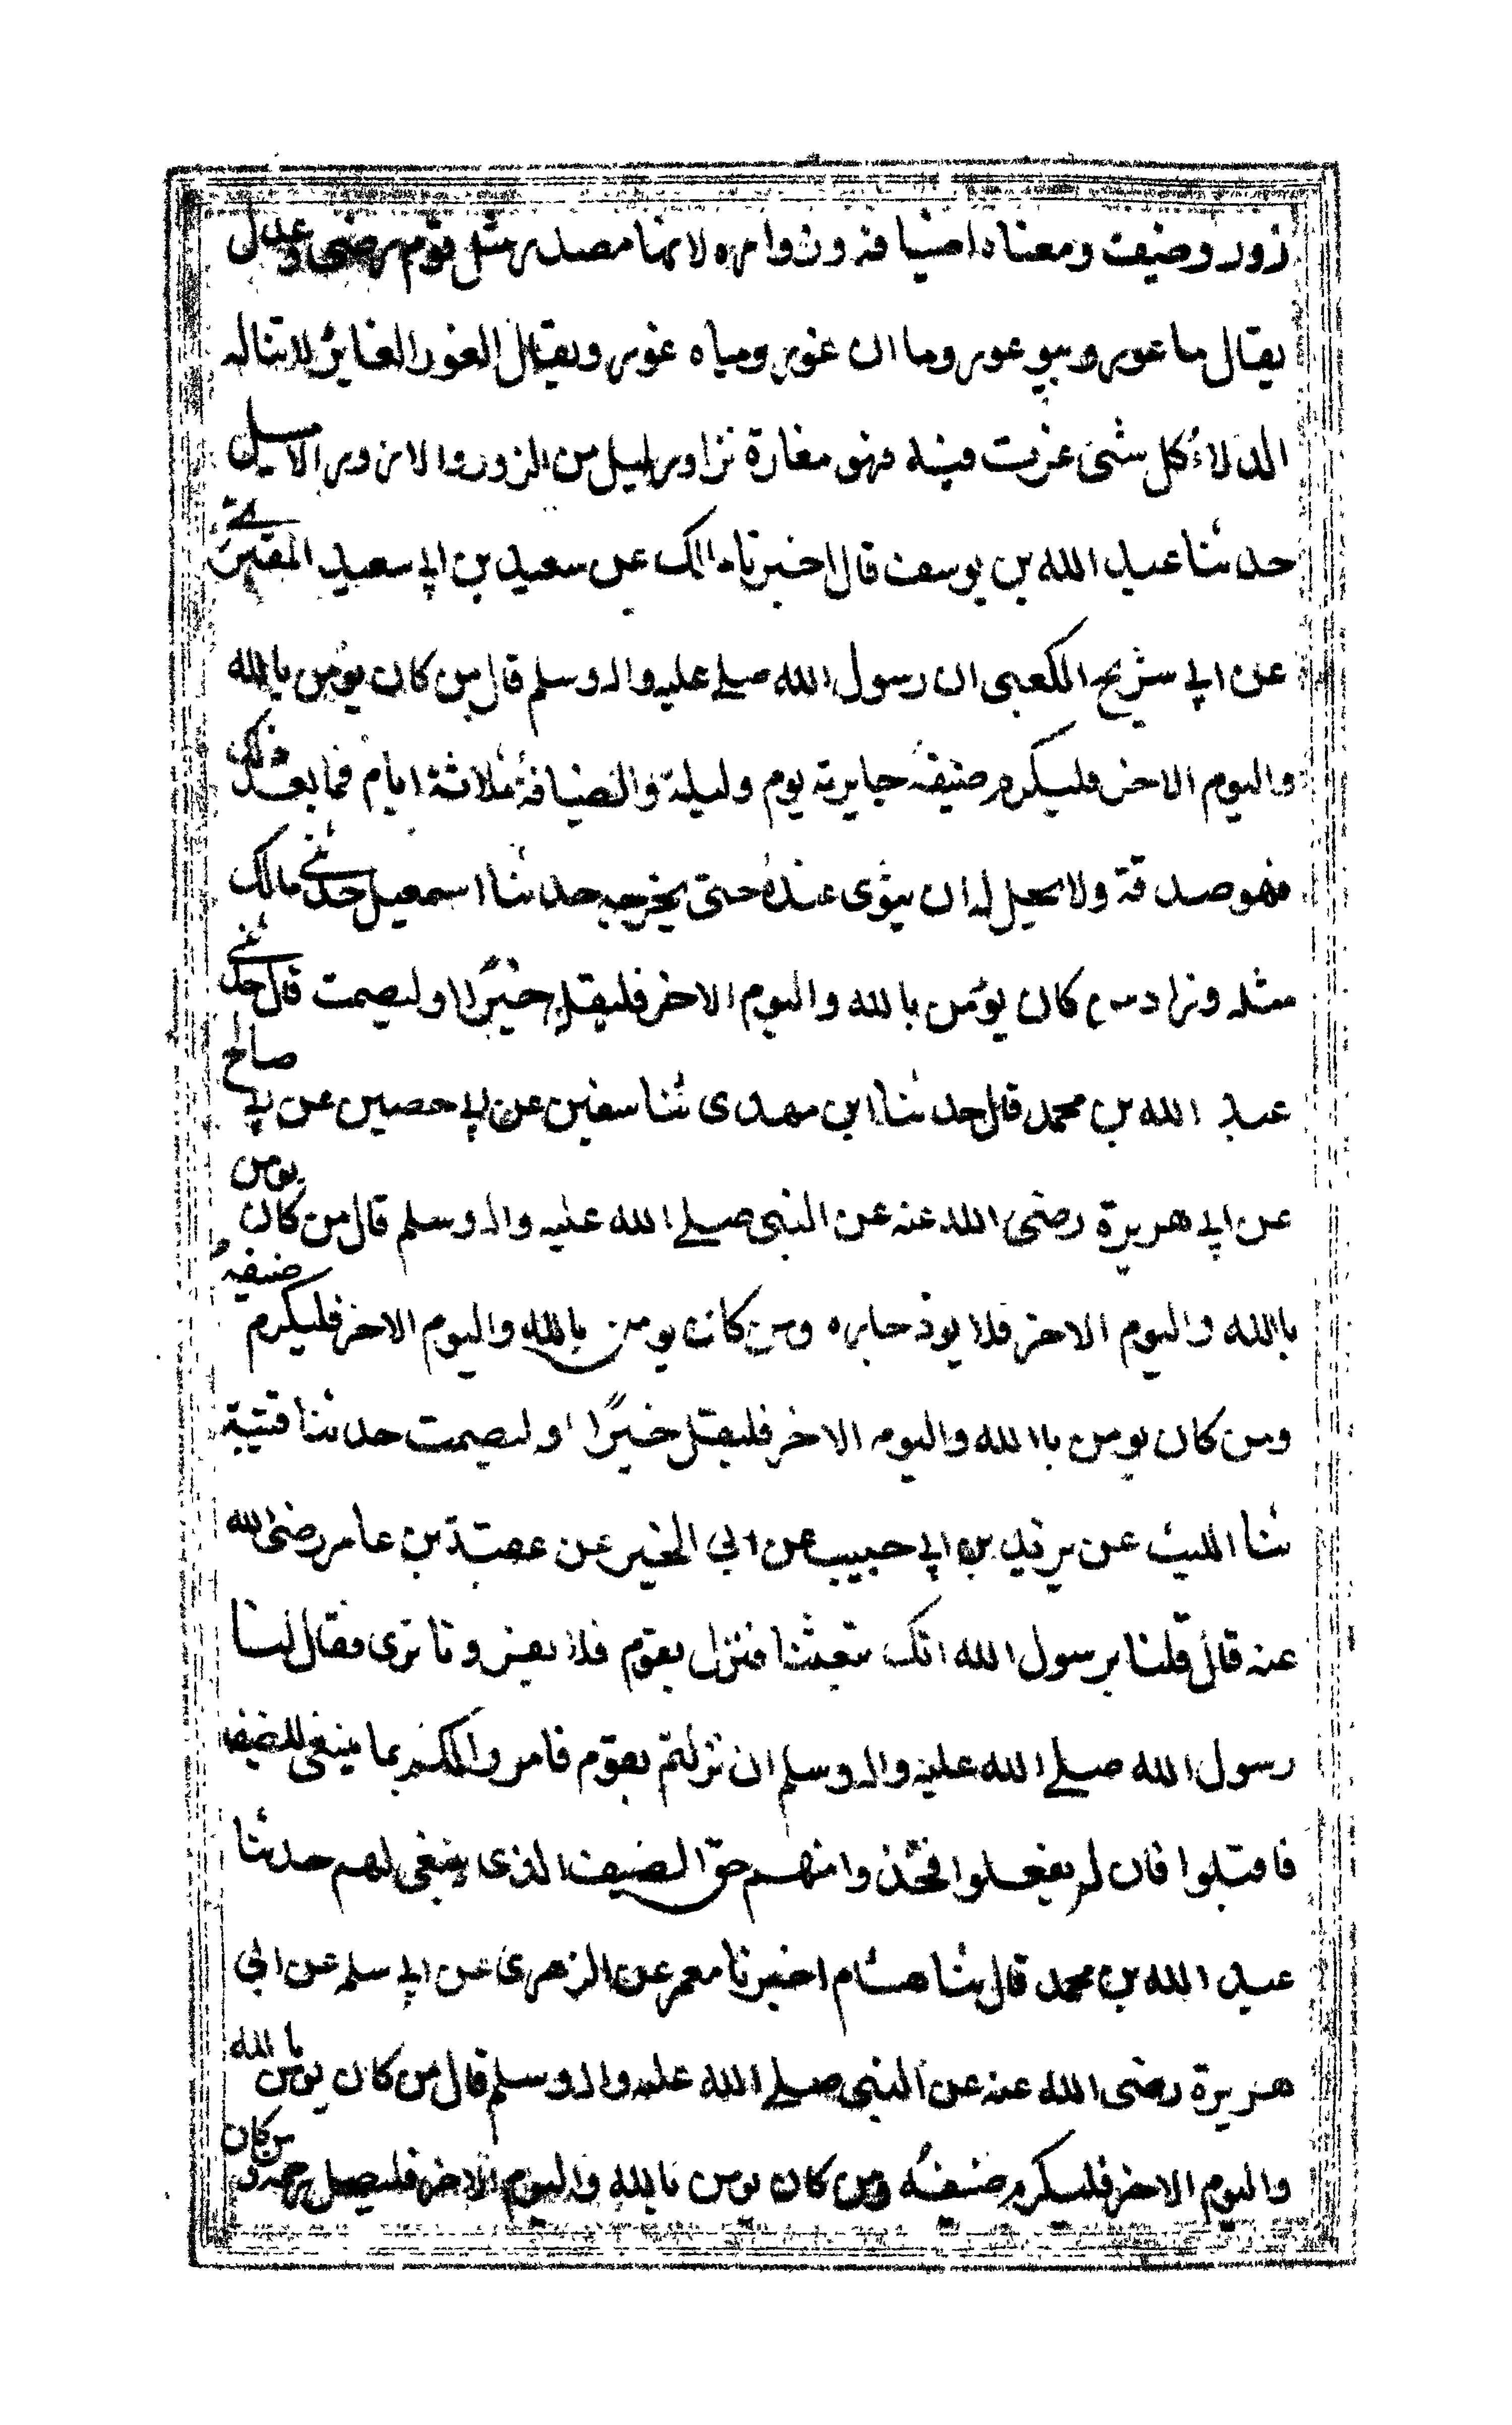 زور وضيف ومعناه اضيافه وزواره لانها مصدر مثل قوم رضى وعدل
يقال ما غور وبير غور وماان غور ومياه غور ويقال الغور الغاير لا تناله
الدلاء كل شئ غرت فيه فهو مغارة تزاور تميل من الزور والازور الاميل
حدثنا عبد الله بن يوسف قال اخبرنا مالك عن سعيد بن ابي سعيد المقبرى
عن ابي شريح الكعبى ان رسول الله صلے عليه واله وسلم قال من كان يؤمن بالله
واليوم الاخر فليكرم ضيفه جايزته يوم وليلة والضيافة ثلاثة ايام فما بعد ذلك
فهو صدقة ولا يحل له ان يثوى عنده حتى يخرجه حدثنا اسمعيل حدثنے مالك
مثله وزاد من كان يؤمن بالله واليوم الاخر فليقل خيرًا او ليصمت قال حدثنے
عبد الله بن محمد قال حدثنا ابن مهدى ثنا سفين عن ابي حصين عن ابي صالح
عن ابي هريرة رضى الله عنه عن النبى صلے الله عليه واله وسلم قال من كان يومن
بالله واليوم الاخر فلا يوذ جاره ومن كان يومن بالله واليوم الاخر فليكرم ضيفه
ومن كان يومن باالله واليوم الاخر فليقل خيرًا او ليصمت حدثنا قتيبة
ثنا الليث عن يزيد بن ابي حبيب عن ابي الخير عن عقبة بن عامر رضى الله
عنه قال قلنا يرسول الله انك تبعثنا فننزل بقوم فلا يقرونا ترى فقال لنا
رسول الله صلے الله عليه واله وسلم ان نزلتم بقوم فامروا لكم بما ينبغى للضيف
فاقبلوا فان لم يفعلوا فخذوا منهم حق الضيف الذى ينبغى لهم حدثنا
عبد الله بن محمد قال ثنا هشام اخبرنا معمر عن الزهرى عن ابي سلمه عن ابي
هريرة رضى الله عنه عن النبى صلے الله عليه واله وسلم قال من كان يومن بالله
واليوم الاخر فليكرم ضيفه ومن كان يومن بالله واليوم الاخر فليصل رحمه ومن كان